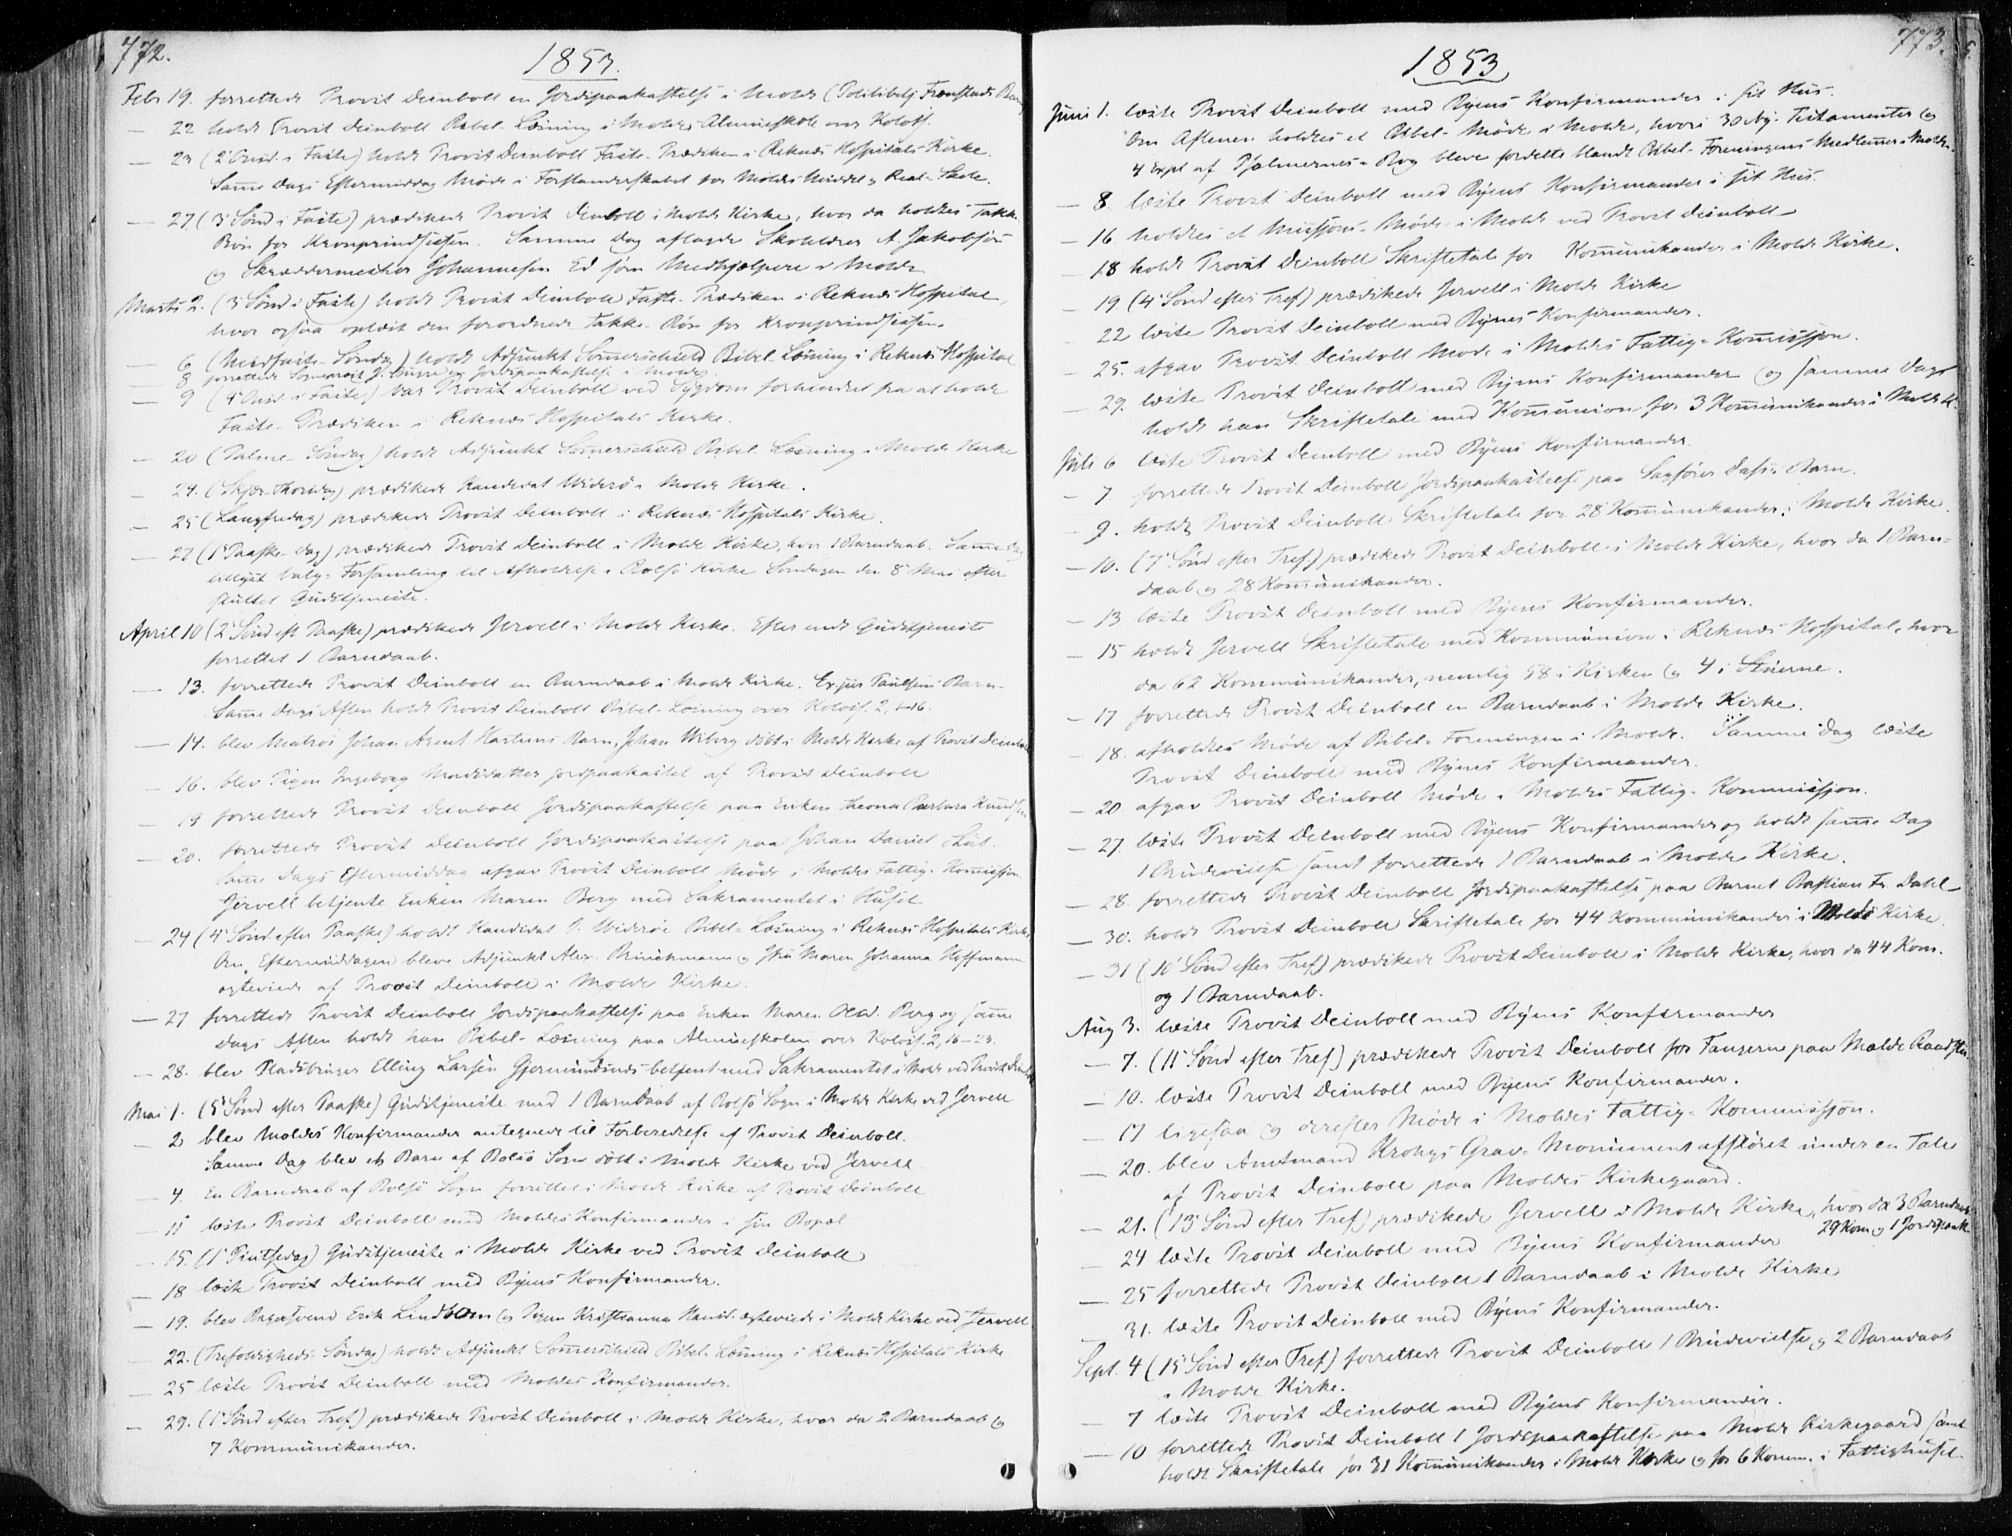 772.
1853.
Febr 19. forrettede Provst Deinboll en Jordspaakastelse i Molde (Politibetj. Fronstads Barn)
— 22 holdt Provst Deinboll Bibel-Læsning i Moldes Almueskole over Koloss.
— 23 (2 Onsd. i Faste) holdt Provst Deinboll Faste-Prædiken i Reknæs Hospitals Kirke.
Samme Dags Eftermiddag Møde i Forstanderskabet for Moldes Middel- og Real-Skole.
— 27 (3 Sønd i Faste) prædikede Provst Deinboll i Molde Kirke, hvor da holdtes Takke-
Bøn for Kronprindsessen. Samme Dag aflagde Skolelærer A. Jakobsen
og Skræddermester Johannesen Ed som Medhjælpere i Molde
Marts 2. (3 Onsd i Faste) holdt Provst Deinboll Faste-Prædiken i Reknæs Hospital,
hvor ogsaa oplæst den forordnede Takke-Bøn for Kronprindsessen.
— 6 (Midfaste-Søndag) holdt Adjunkt Sommerschield Bibel-Læsning i Reknæs Hospital
— 8 forrettede Jordspaakastelse i Molde
— 9 (4 Onsd. i Faste) var Provst Deinboll ved Sygdom forhindret fra at holde
Faste-Prædiken i Reknæs Hospitals Kirke.
— 20 (Palme-Søndag) holdt Adjunkt Sommerschield Bibel-Læsning i Molde Kirke
— 24. (Skjær-Thorsdag) prædikede Kandidat Widerø i Molde Kirke.
— 25 (Langfredag) prædikede Provst Deinboll i Reknæs Hospitals Kirke.
— 27 (1 Paaske-dag) prædikede Provst Deinboll i Molde Kirke, hvor 1 Barnedaab. Samme Dag
tillyst Valg-Forsamling til Afholdelse i Bolsø Kirke Søndagen den 8 Mai efter
sluttet Gudstjeneste.
April 10 (2 Sønd eft Paaske) prædikede Jervell i Molde Kirke. Efter endt Gudstjeneste
forrettet 1 Barnedaab.
— 13. forrettede Provst Deinboll en Barnedaab i Molde Kirke. Paulsens Barn.
Samme Dags Aften holdt Provst Deinboll Bibel-Læsning over Koloss. 2, 1-16.
— 14. blev Matros Johan Arent Hartuns Barn, Johan Wiberg døbt i Molde Kirke af Provst Deinboll
— 16. blev Pigen Ingeborg Madsdatter jordpaakastet af Provst Deinboll
— 19 forrettede Provst Deinboll Jordspaakastelse paa Enken Theona Barbara Knudsen
— 20. forrettede Provst Deinboll Jordspaakastelse paa Johan Daniel
Samme Dags Eftermiddag afgav Provst Deinboll Møde i Moldes Fattig-Kommission.
Jervell betjente Enken Maren Berg med Sakramentet i Huset
— 24 (4 Sønd efter Paaske) holdt Kandidat J. Widerøe Bibel-Læsning i Reknæs Hospitals Kirke
Om Eftermiddagen bleve Adjunkt Alex. Brinchmann og Jfru Maren Johanna Hoffmann
ægteviede af Provst Deinboll i Molde Kirke.
— 27 forrettede Provst Deinboll Jordspaakastelse paa Enken Maren Olsd. Berg og samme
Dags Aften holdt han Bibel-Læsning paa Almueskolen over Koloss. 2, 16-23.
— 28. blev Pladsbruger Elling Larsen Gjermundsnes betjent med Sakramentet i Molde ved Provst Deinboll
Mai 1. (5 Sønd efter Paaske) Gudstjeneste med 1 Barndaab af Bolsø Sogn i Molde Kirke ved Jervell
— 2 blev Moldes Konfirmander antegnede til Forberedelse af Provst Deinboll.
Samme Dag blev et Barn af Bolsø Sogn døbt i Molde Kirke ved Jervell.
— 4. En Barndaab af Bolsø Sogn forrettet i Molde Kirke af Provst Deinboll
— 11 læste Provst Deinboll med Moldes Konfirmander i sin Bopæl
— 15. (1 Pintsedag) Gudstjeneste i Molde Kirke ved Provst Deinboll
— 18 læste Provst Deinboll med Byens Konfirmander.
— 19. blev Bagersvend Erik Lindbom og Pigen Kristianna Hansd. ægteviede i Molde Kirke ved Jervell
— 22. (Trefoldigheds-Søndag) holdt Adjunkt Sommerschield Bibel-Læsning i Reknæs Hospitals Kirke
— 25 læste Provst Deinboll med Moldes Konfirmander.
— 29. (1 Sønd efter Tref.) prædikede Provst Deinboll i Molde Kirke, hvor da 2 Barndaab og
7 Kommunikander.
773.
1853
Juni 1. læste Provst Deinboll med Byens Konfirmander i sit Hus.
Om Aftenen holdtes et Bibel-Møde i Molde, hvori 30 Ny-Testamenter og
4 Expl af Psalmernes-Bog bleve fordelte blandt Bibel-Foreningens Medlemmer i Molde.
— 8 læste Provst Deinboll med Byens Konfirmander i sit Hus.
— 16 holdtes et Missions-Møde i Molde ved Provst Deinboll
— 18 holdt Provst Deinboll Skriftetale for Kommunikander i Molde Kirke.
— 19 (4 Sønd efter Tref) prædikede Jervell i Molde Kirke
— 22 læste Provst Deinboll med Byens Konfirmander.
— 25. afgav Provst Deinboll Møde i Moldes Fattig-Kommission.
— 29. læste Provst Deinboll med Byens Konfirmander og samme Dag
holdt han Skriftetale med Kommunion for 3 Kommunikander i Molde K.
Juli 6 læste Provst Deinboll med Byens Konfirmander.
— 7. forrettede Provst Deinboll Jordspaakastelse paa Sagfører Barn.
— 9. holdt Provst Deinboll Skriftetale for 28 Kommunikander i Molde Kirke.
— 10. (7 Sønd efter Tref) prædikede Provst Deinboll i Molde Kirke, hvor da 1 Barn-
daab og 28 Kommunikander.
— 13 læste Provst Deinboll med Byens Konfirmander.
— 15 holdt Jervell Skriftetale med Kommunion i Reknæs Hospital, hvor
da 62 Kommunikander, nemlig 58 i Kirken og 4 i Stuerne.
— 17 forrettede Provst Deinboll en Barndaab i Molde Kirke.
— 18. afholdtes Møde af Bibel-Foreningen i Molde. Samme Dag læste
Provst Deinboll med Byens Konfirmander.
— 20 afgav Provst Deinboll Møde i Moldes Fattig-Kommission.
— 27. læste Provst Deinboll med Byens Konfirmander og holdt samme Dag
1 Brudevielse samt forrettede 1 Barndaab i Molde Kirke.
— 28. forrettede Provst Deinboll Jordspaakastelse paa Barnet Bastian Fr. Dahl
— 30. holdt Provst Deinboll Skriftetale for 44 Kommunikander i Molde Kirke.
— 31 (10 Sønd efter Tref) prædikede Provst Deinboll i Molde Kirke, hvor da 44 Kom.
og 1 Barndaab.
Aug 3. læste Provst Deinboll med Byens Konfirmander
— 7. (11 Sønd efter Tref) prædikede Provst Deinboll for Fangerne paa Molde Raadstue
— 10. læste Provst Deinboll med Byens Konfirmander.
— 17 ligesaa og derefter Møde i Moldes Fattig-Kommission.
— 20. blev Amtmand Krohgs Grav-Monument afsløret under en Tale
af Provst Deinboll paa Moldes Kirkegaard.
— 21. (13 Sønd efter Tref) prædikede Jervell i Molde Kirke, hvor da 3 Barndaab
29 Kom. og 1 Jordspaak.
— 24 læste Provst Deinboll med Byens Konfirmander
— 25 forrettede Provst Deinboll 1 Barndaab i Molde Kirke
— 31. læste Provst Deinboll med Byens Konfirmander.
Sept. 4 (15 Sønd efter Tref) forrettede Provst Deinboll 1 Brudevielse og 2 Barndaab
i Molde Kirke.
— 7 læste Provst Deinboll med Byens Konfirmander.
— 10 forrettede Provst Deinboll 1 Jordspaakastelse paa Molde Kirkegaard samt
holdt Skriftetale for 31 Kommunikander i Molde Kirke og for 6 Komm. i Fattighuset.